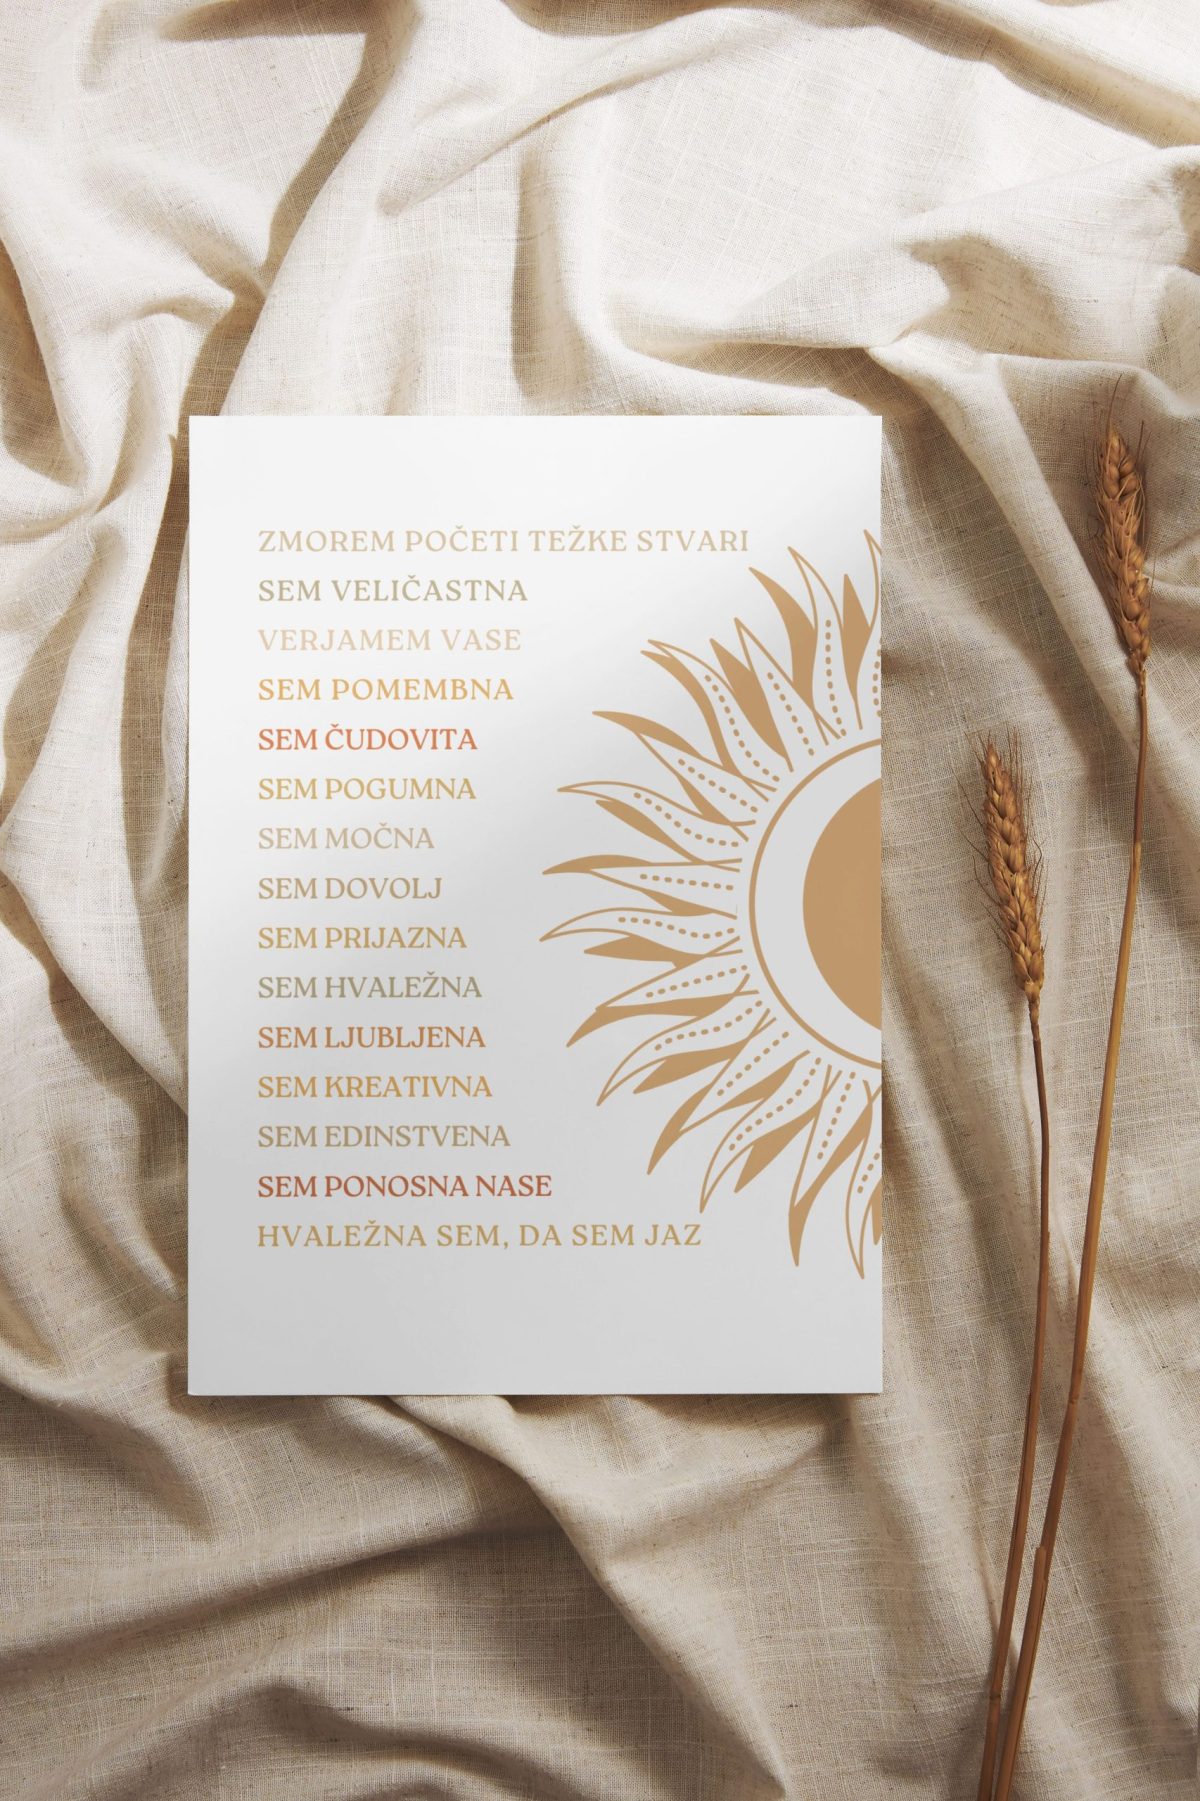 ZMOREM POČETI TEŽKE STVARI
SEM VELIČASTNA
VERJAMEM VASE
SEM POMEMBNA
SEM ČUDOVITA
SEM POGUMNA
SEM MOČNA
SEM DOVOLJ
SEM PRIJAZNA
SEM HVALEŽNA
SEM LJUBLJENA
SEM KREATIVNA
SEM EDINSTVENA
SEM PONOSNA NASE
HVALEŽNA SEM, DA SEM JAZ